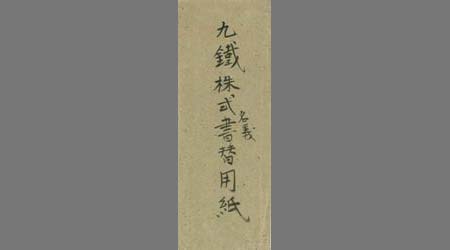 九鐵株式書替用紙
名義